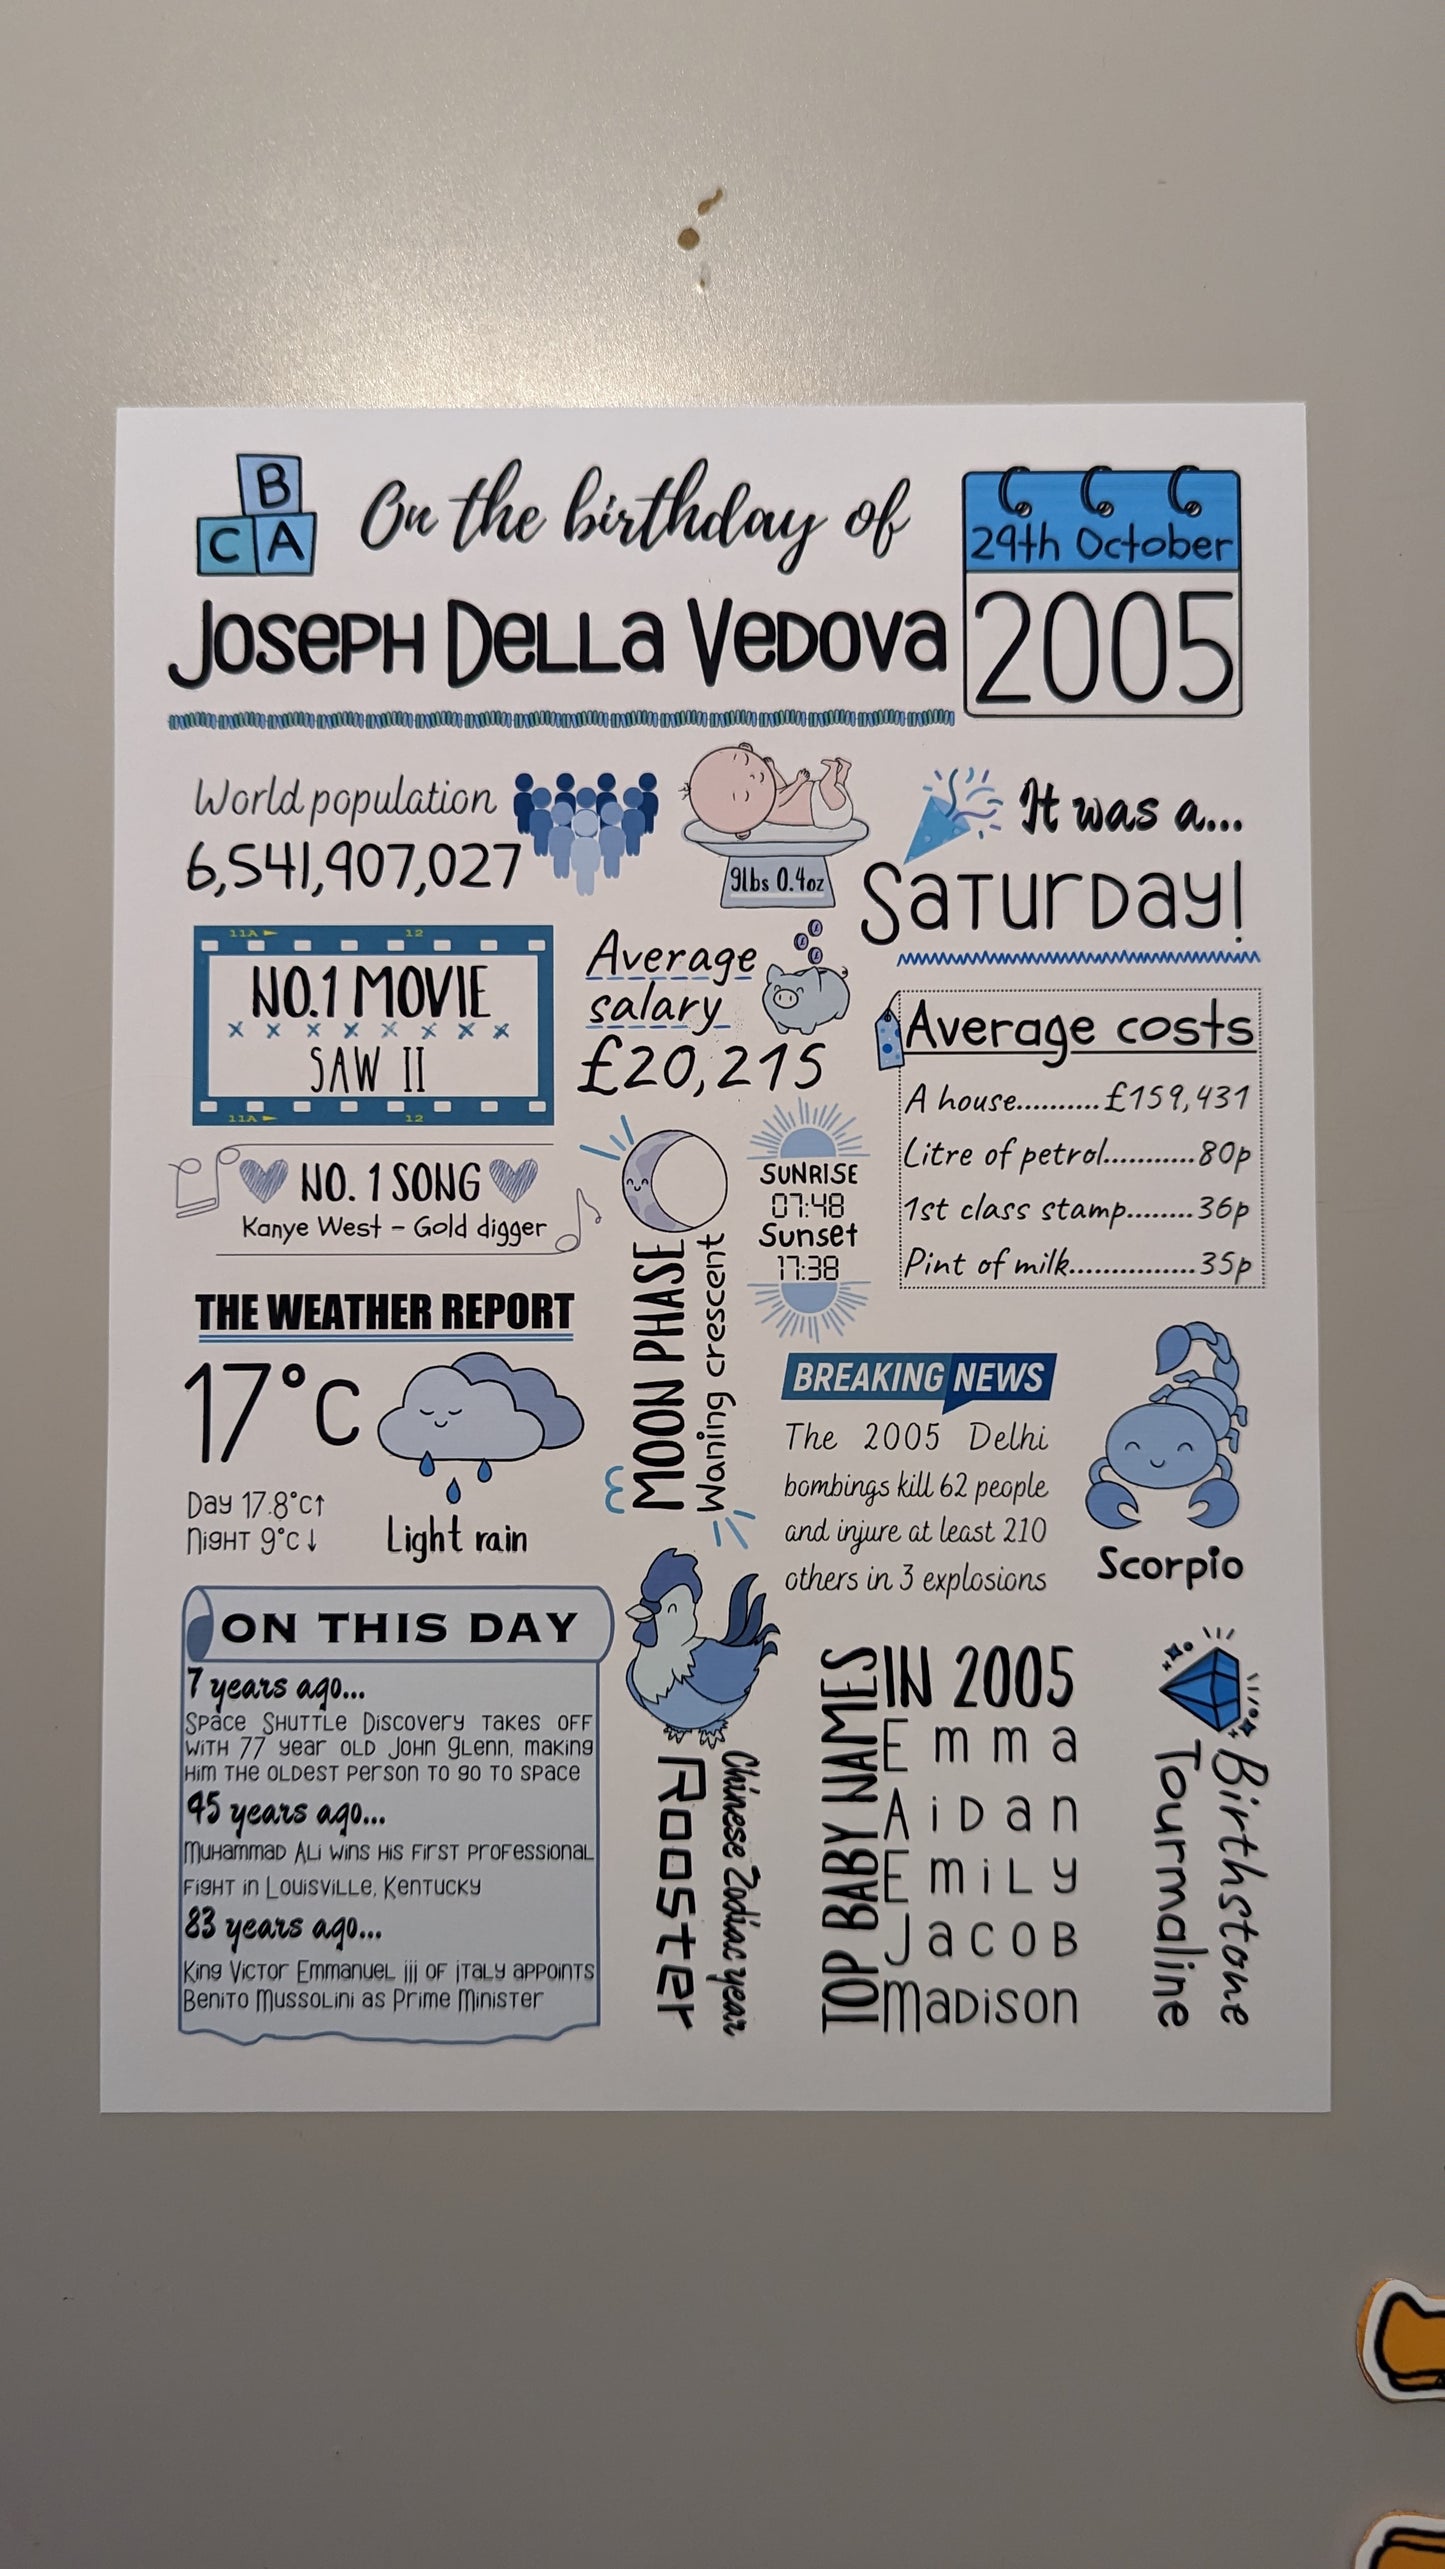 B
C A
On the birthday of
Joseph Della Vedova
29th October
2005
World population
6,541,907,027
9lbs 0.4oz
It was a...
Saturday!
11A 12
NO.1 MOVIE
x x x x x x x x
SAW II
11A 12
Average
salary
£20,215
Average costs
A house..........£159,431
Litre of petrol...........80p
1st class stamp........36p
Pint of milk...............35p
NO. 1 SONG
Kanye West – Gold digger
MOON PHASE
Waning crescent
SUNRISE
07:48
Sunset
17:38
THE WEATHER REPORT
17°C
Day 17.8°C↑
Night 9°C↓
Light rain
BREAKING NEWS
The 2005 Delhi
bombings kill 62 people
and injure at least 210
others in 3 explosions
Scorpio
ON THIS DAY
7 years ago...
Space Shuttle Discovery takes off
with 77 year old John Glenn, making
him the oldest person to go to space
45 years ago...
Muhammad Ali wins his first professional
fight in Louisville, Kentucky
83 years ago...
King Victor Emmanuel iii of italy appoints
Benito Mussolini as Prime Minister
Chinese Zodiac year
Rooster
TOP BABY NAMES
IN 2005
Emma
Aidan
Emily
Jacob
Madison
Birthstone
Tourmaline